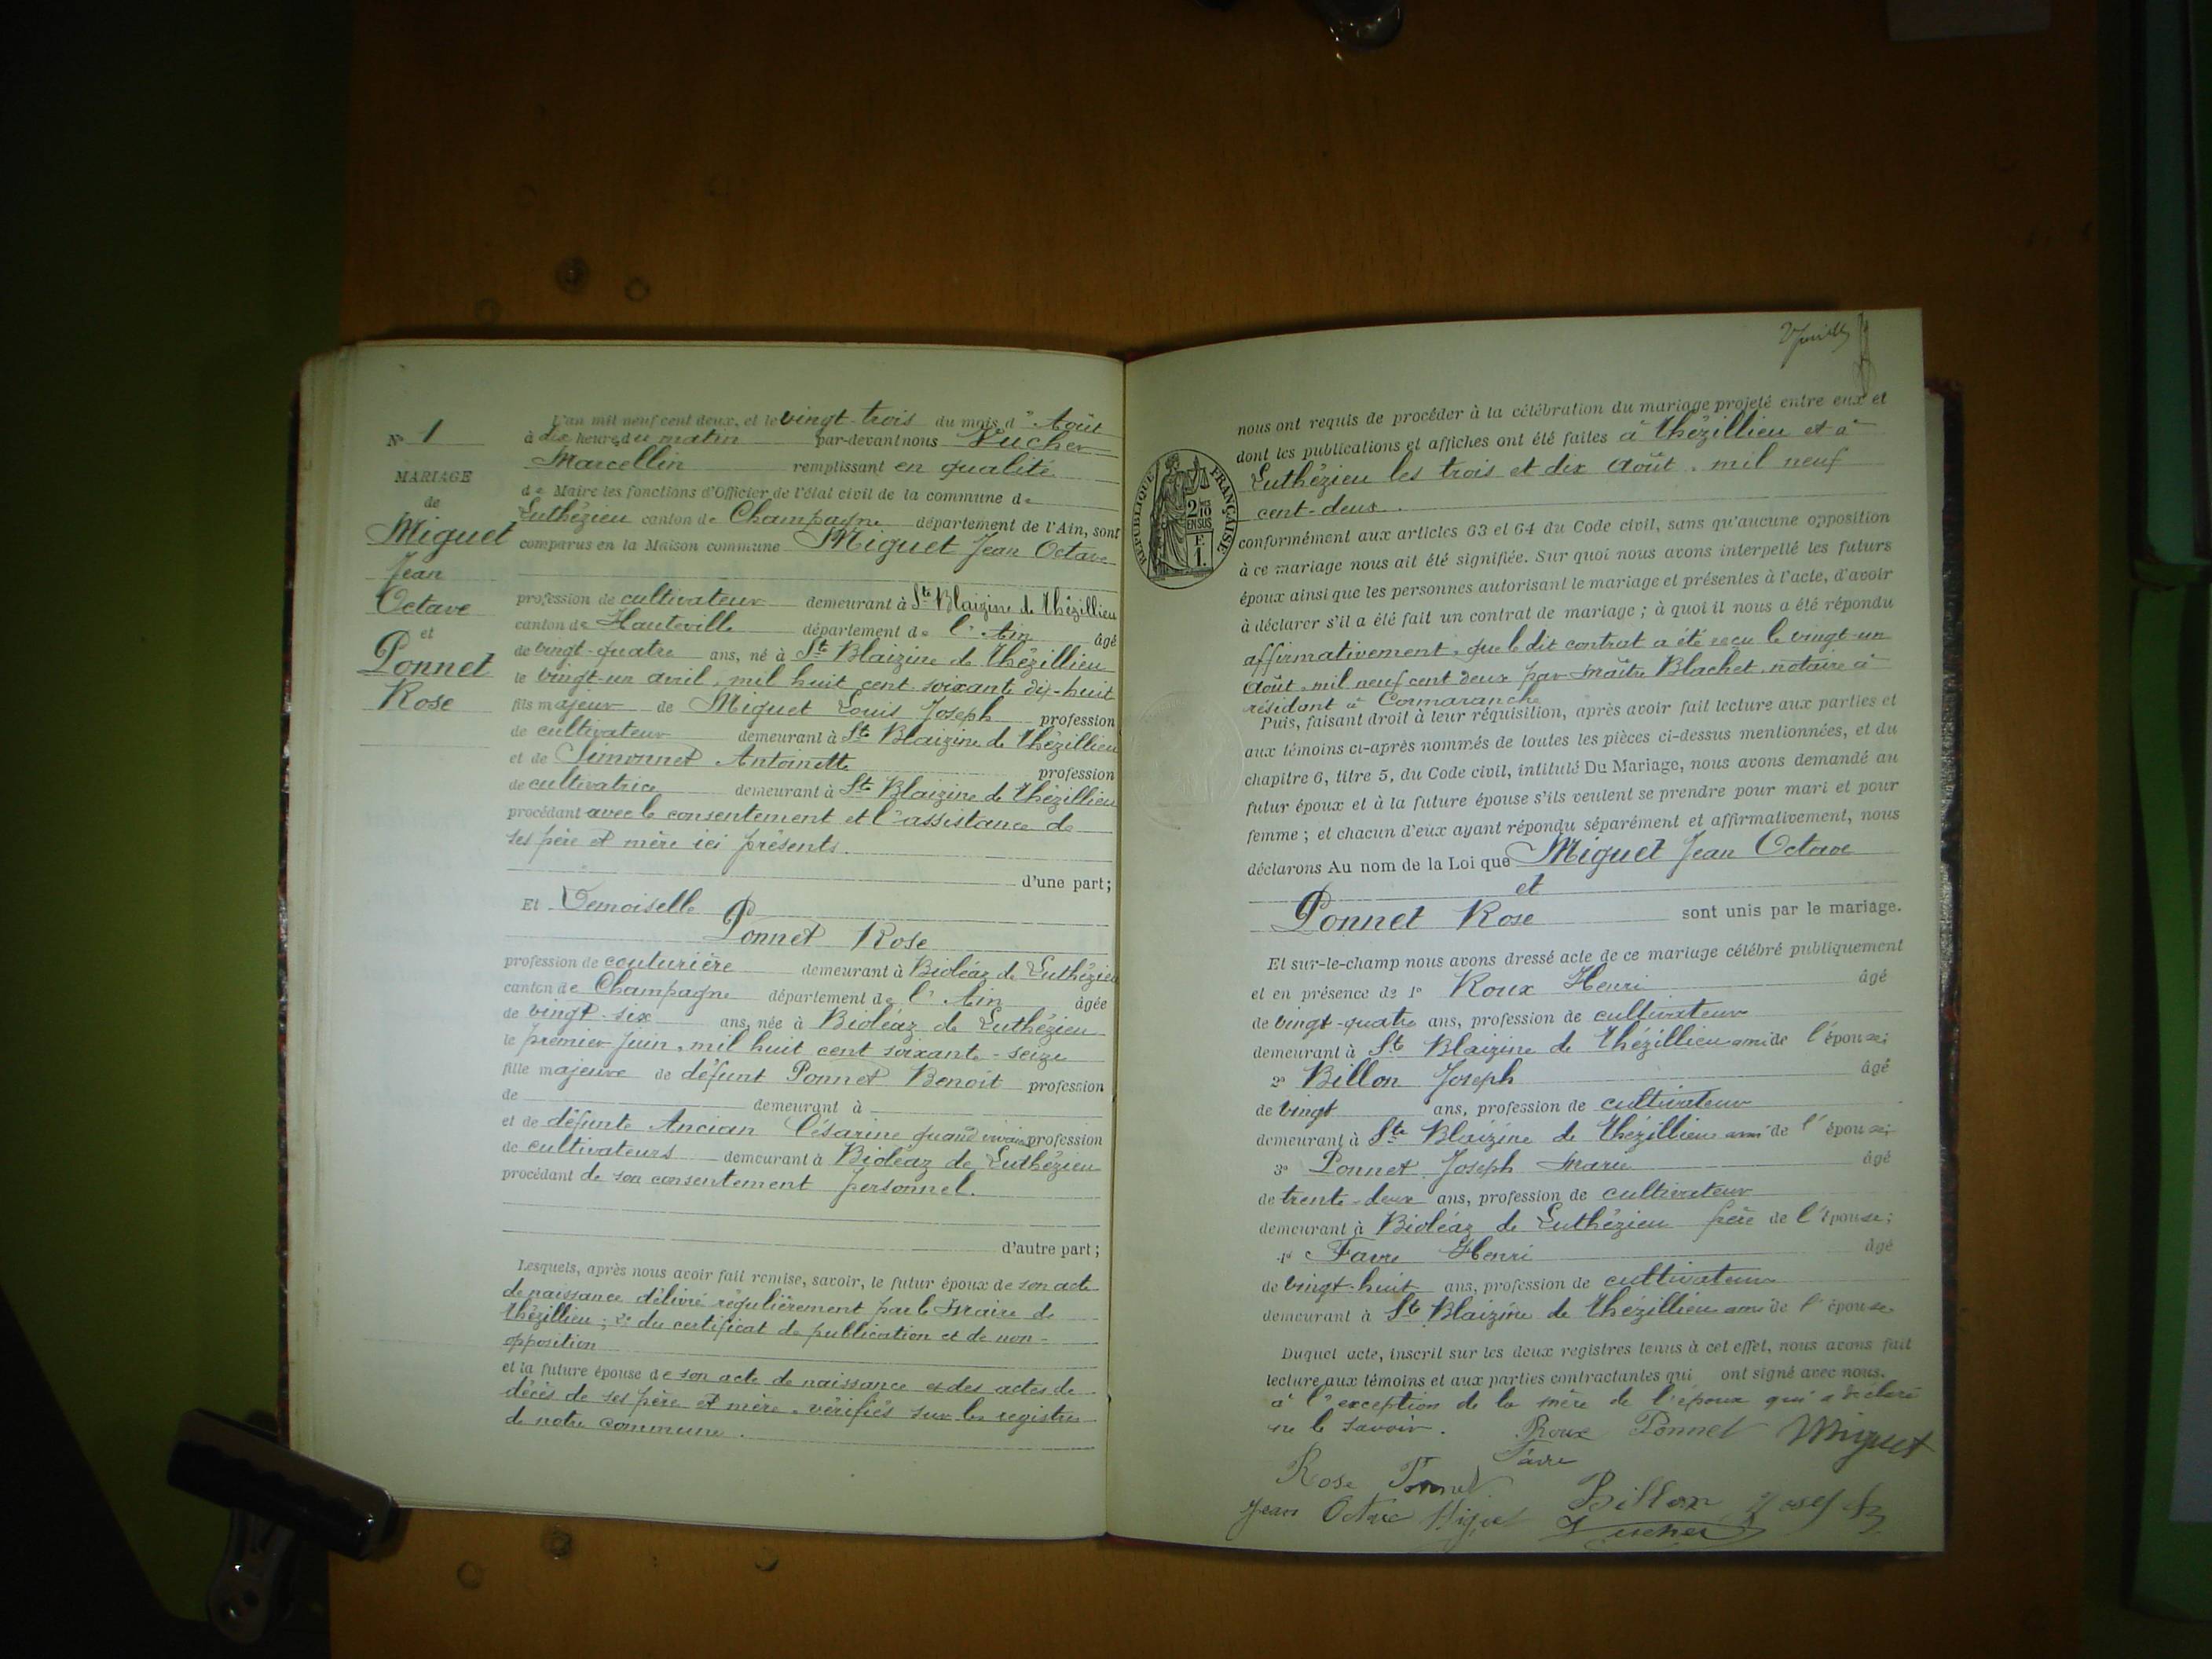 N° 1
MARIAGE
de
Miguet
Jean
Octave
et
Ponnet
Rose
L'an mil neuf cent deux, et le vingt-trois du mois d' Août
à dix heures du matin par-devant nous Lucher
Marcellin remplissant en qualité
de Maire les fonctions d'Officier de l'état civil de la commune de
Luthézieu canton de Champagne département de l'Ain, sont
comparus en la Maison commune Miguet Jean Octave
profession de cultivateur demeurant à Ste Blaizine de Thézillieu
canton de Hauteville département de l'Ain âgé
de vingt-quatre ans, né à Ste Blaizine de Thézillieu
le vingt-un avril, mil huit cent soixante dix-huit
fils majeur de Miguet Louis Joseph profession
de cultivateur demeurant à Ste Blaizine de Thézillieu
et de Simonnet Antoinette profession
de cultivatrice demeurant à Ste Blaizine de Thézillieu
procédant avec le consentement et l'assistance de
ses père et mère ici présents.
d'une part;
Et Demoiselle
Ponnet Rose
profession de couturière demeurant à Bioléaz de Luthézieu
canton de Champagne département de l'Ain âgée
de vingt-six ans, née à Bioléaz de Luthézieu
le premier Juin, mil huit cent soixante-seize
fille majeure de défunt Ponnet Benoit profession
de demeurant à
et de défunte Ancian Césarine quand vivaient profession
de cultivateurs demeurant à Bioléaz de Luthézieu
procédant de son consentement personnel.
d'autre part;
Lesquels, après nous avoir fait remise, savoir, le futur époux de son acte
de naissance délivré régulièrement par le Maire de
Thézillieu; 2° du certificat de publication et de non-
opposition
et la future épouse de son acte de naissance et des actes de
décès de ses père et mère, vérifiés sur les registres
de notre commune.
nous ont requis de procéder à la célébration du mariage projeté entre eux et
dont les publications et affiches ont été faites à Thézillieu et à
Luthézieu les trois et dix Août, mil neuf
cent-deux.
RÉPUBLIQUE FRANÇAISE
2/10
EN SUS
F.
1.
conformément aux articles 63 et 64 du Code civil, sans qu'aucune opposition
à ce mariage nous ait été signifiée. Sur quoi nous avons interpellé les futurs
époux ainsi que les personnes autorisant le mariage et présentes à l'acte, d'avoir
à déclarer s'il a été fait un contrat de mariage; à quoi il nous a été répondu
affirmativement, que le dit contrat a été reçu le vingt-un
Août, mil neuf cent deux par Maître Blachet, notaire à
résidant à Cormaranche
Puis, faisant droit à leur réquisition, après avoir fait lecture aux parties et
aux témoins ci-après nommés de toutes les pièces ci-dessus mentionnées, et du
chapitre 6, titre 5, du Code civil, intitulé Du Mariage, nous avons demandé au
futur époux et à la future épouse s'ils veulent se prendre pour mari et pour
femme; et chacun d'eux ayant répondu séparément et affirmativement, nous
déclarons Au nom de la Loi que Miguet Jean Octave
et
Ponnet Rose sont unis par le mariage.
Et sur-le-champ nous avons dressé acte de ce mariage célébré publiquement
et en présence de 1° Roux Henri âgé
de vingt-quatre ans, profession de cultivateur
demeurant à Ste Blaizine de Thézillieu ami de l'épouse;
2° Billon Joseph âgé
de vingt ans, profession de cultivateur
demeurant à Ste Blaizine de Thézillieu ami de l'épouse;
3° Ponnet Joseph Marie âgé
de trente-deux ans, profession de cultivateur
demeurant à Bioléaz de Luthézieu frère de l'épouse;
4° Favre Henri âgé
de vingt-huit ans, profession de cultivateur
demeurant à Ste Blaizine de Thézillieu ami de l'épouse
Duquel acte, inscrit sur les deux registres tenus à cet effet, nous avons fait
lecture aux témoins et aux parties contractantes qui ont signé avec nous.
à l'exception de la mère de l'époux qui a déclaré
ne le savoir. Roux Ponnet Miguet
Favre
Rose Ponnet Billon Joseph
Jean Octave Miguet Lucher